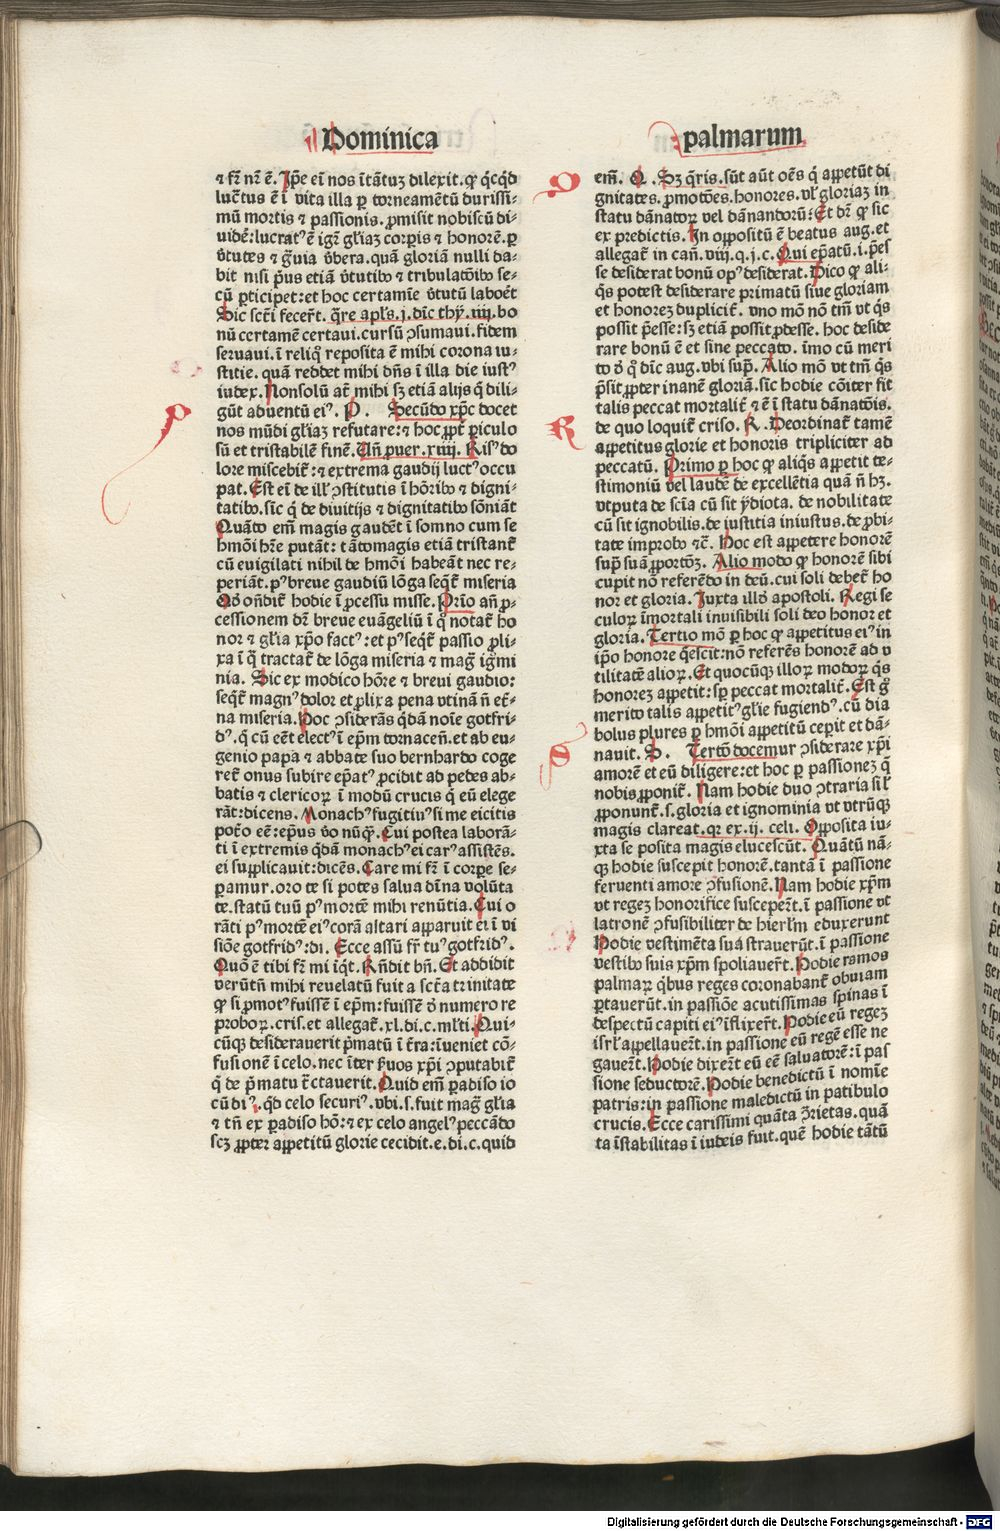 Dominica
⁊ fr̄ nr̄ ē. Ip̄e ei̅ nos ītātuʒ dilexit. qꝫ q̇cq̇d
luct̉us ē ī vita illa ꝑ torneamētū durissi-
mū mortis ⁊ passionis. ꝓmisit nobiscū di-
videˉ: lucratˀ ē igr̄ gl̄iaʒ corꝑis ⁊ honorē. ꝑ
v̉tutes ⁊ gᷓuia v̉bera. quā gloriā nulli da-
bit nisi pˢus etiā v̉tutibꝰ ⁊ tribulatōibꝰ se-
cū ꝑticipet: et hoc certamīe v̉tutū laboēt
Sic sct̄i fecer̄t. q̄re apl̄s. j. dīc thy̅. iiij. bo
nū certamē certaui. cursū ꝯsumaui. fidem
seruaui. ī reliqꝰ reposita ē mihi corona iu-
stitie. quā reddet mihi dn̄s ī illa die iustˀ
iudex. Nonsolū at̄ mihi sʒ etiā alijs q̇ dili-
gūt aduentū eiˀ. P. Secūdo xp̄c docet
nos mūdi gl̄iaʒ refutare: ⁊ hoc ꝓpt̉ ꝑiculo
sū et tristabilē finē. Un̄ ꝓuer. xiiij. Risˀ do
lore miscebit̄: ⁊ extrema gaudij luctˀ occu
pat. Est ei̅ de illˀ ꝯstitutis ī hōribꝰ ⁊ digni-
tatibꝰ. sic̄ q̇ de diuitijs ⁊ dignitatibꝰ sōniāt
Quāto em̄ magis gaudēt ī somno cum se
hmōi hr̄e putāt: tātomagis etiā tristant̄
cū euigilati nihil de hmōi habeāt nec re-
periāt. pˀ breue gaudiū lōga seqt̄ miseria
Qd̉ on̄dit̄ hodie ī ꝓcessu misse. Prīo an̄ ꝓ-
cessionem dr̄ breue euāgeliū ī qꝰ notat̄ ho
nor ⁊ gl̄ia xp̄o factˀ: et pˀ seqt̄ passio ꝓli-
xa ī q̄ tractat̄ de lōga miseria ⁊ mag̉ igmi
nia. Sic ex modico hōre ⁊ breui gaudio:
seqt̄ magnˀ dolor et ꝓlixa pena vtinā n̄ et̉-
na miseria. Hoc ꝯsiderās q̇dā noīe gotfri-
dˀ. q̇ cū eēt electˀ ī ep̄m tornacen̄. et ab eu-
genio papa ⁊ abbate suo bernhardo coge
ret̄ onus subire ep̄atˀ ꝓcidit ad pedes ab-
batis ⁊ clericoꝝ ī modū crucis q̇ eū elege
rāt: dicens. Monachˀ fugitiuˀ si me eicitis
pot̉o eē: ep̄us v̉o nūqᷓ. Cui postea laborā-
ti ī extremis q̇dā monachˀ ei carˀ assistēs.
ei supplicauit: dicēs. Care mi fr̄ ī corꝑe se-
ꝑamur. oro te si potes salua dīna volūta
te. statū tuū pˀ mortē mihi renūtia. Cui o
rāti pˀ mortē eiˀ corā altari apparuit ei ī vi
siōe gotfridˀ: di. Ecce assū fr̄ tuˀ gotfridˀ.
Quō ē tibi fr̄ mi iqt. Rn̄dit bn̄. Et addidit
verūtn̄ mihi reuelatū fuit a sct̄a trinitate
qꝫ si ꝓmotˀ fuissē ī ep̄m: fuissē v̉o numero re
proboꝝ. cris. et allegat̄. xl. di. c. ml̄ti. Qui-
cūqꝫ desiderauerit pˢmatū ī t̉ra: īueniet cō-
fusionē ī celo. nec īter ẜuos xp̄i ꝯputabit̄
q̇ de pˢmatu tᷓctauerit. Quid em̄ ꝑadiso io
cūdiˀ. qd̉ celo securiˀ. vbi. s. fuit mag̉ gl̄ia
⁊ tn̄ ex ꝑadiso hō: ⁊ ex celo angelˀ peccādo
scʒ ꝓpter appetitū glorie cecidit. e. di. c. quid
palmarum
em̄. Q. Sʒ q̄ris. sūt aūt oēs q̇ appetūt di
gnitates. ꝓmotōes. honores. vl̉ gloriaʒ in
statu dānatoꝝ vel dānandorū: Et dr̄ qꝫ sic
ex predictis. In oppositū ē beatus aug. et
allegat̄ in can̄. viij. q. j. c. Qui ep̄atū. i. pˢes
se desiderat bonū opˀ desiderat. Dico qꝫ ali-
q̇s potest desiderare primatū siue gloriam
et honoreʒ duplicit̉. vno mō nō tm̄ vt q̇s
possit p̄esse: sʒ etiā possit ꝓdesse. hoc deside
rare bonū ē et sine peccato. īmo cū meri
to v̉ q̇ dīc aug. vbi supᷓ. Alio mō vt tm̄ q̇s
p̄sit ꝓpter inanē gloriā. sic̄ hodie cōiter fit
talis peccat mortalit̉ ⁊ ē ī statu dānatōis.
de quo loquit̄ criso. R. Deordinat̄ tamē
appetitus glorie et honoris tripliciter ad
peccatū. Primo ꝑ hoc qꝫ aliq̇s appetit te-
stimoniū vel laudē de excellētia quā n̄ hʒ.
vtputa de scīa cū sit ydiota. de nobilitate
cū sit ignobilis. de iustitia iniustus. de ꝓbi-
tate improbꝰ ⁊c̄. Hoc est appetere honorē
supᷓ suā ꝓportōʒ. Alio modo qꝫ honorē sibi
cupit nō referēdo in deū. cui soli debet̄ ho
nor et gloria. Iuxta illd̉ apostoli. Regi se
culoꝝ īmortali inuisibili soli deo honor et
gloria. Tertio mō ꝑ hoc qꝫ appetitus eiˀ in
ip̄o honore q̇escit: nō referēs honorē ad v
tilitatē alioꝝ. Et quocūqꝫ illoꝝ modoꝝ q̇s
honoreʒ appetit: sꝑ peccat mortalit̉. Est gꝰ
merito talis appetitˀ gl̄ie fugiendˀ. cū dia
bolus plures ꝑ hmōi appetitū cepit et dā-
nauit. S. Tertō docemur ꝯsiderare xp̄i
amorē et eū diligere: et hoc ꝑ passioneʒ q̄
nobis ꝓponit̄. Nam hodie duo ꝯtraria sil̉
ꝓponunt̄. s. gloria et ignominia vt vtrūqꝫ
magis clareat. qꝛ ex. ij. celi. Opposita iu-
xta se posita magis elucescūt. Quātū nā-
qꝫ hodie suscepit honorē. tantā ī passione
feruenti amore ꝯfusionē. Nam hodie xp̄m
vt regeʒ honorifice susceper̄t. ī passione vt
latronē ꝯfusibiliter de hierl̄m eduxerunt
Hodie vestimēta sua strauerūt. ī passione
vestibꝰ suis xp̄m spoliauer̄t. Hodie ramos
palmaꝝ q̇bus reges coronabant̄ obuiam
ꝑtauerūt. in passiōe acutissimas spinas ī
despectū capiti eiˀ īflixer̄t. Hodie eū regeʒ
isrl̄ appellauer̄t. in passione eū regē esse ne
gauer̄t. Hodie dixer̄t eū eē saluatorē: ī pas
sione seductorē. Hodie benedictū ī nomīe
patris: in passione maledictū in patibulo
crucis. Ecce carissimi quāta v̉rietas. quā
ta īstabilitas ī iudeis fuit. quē hodie tātū
Digitalisierung gefördert durch die Deutsche Forschungsgemeinschaft - DFG